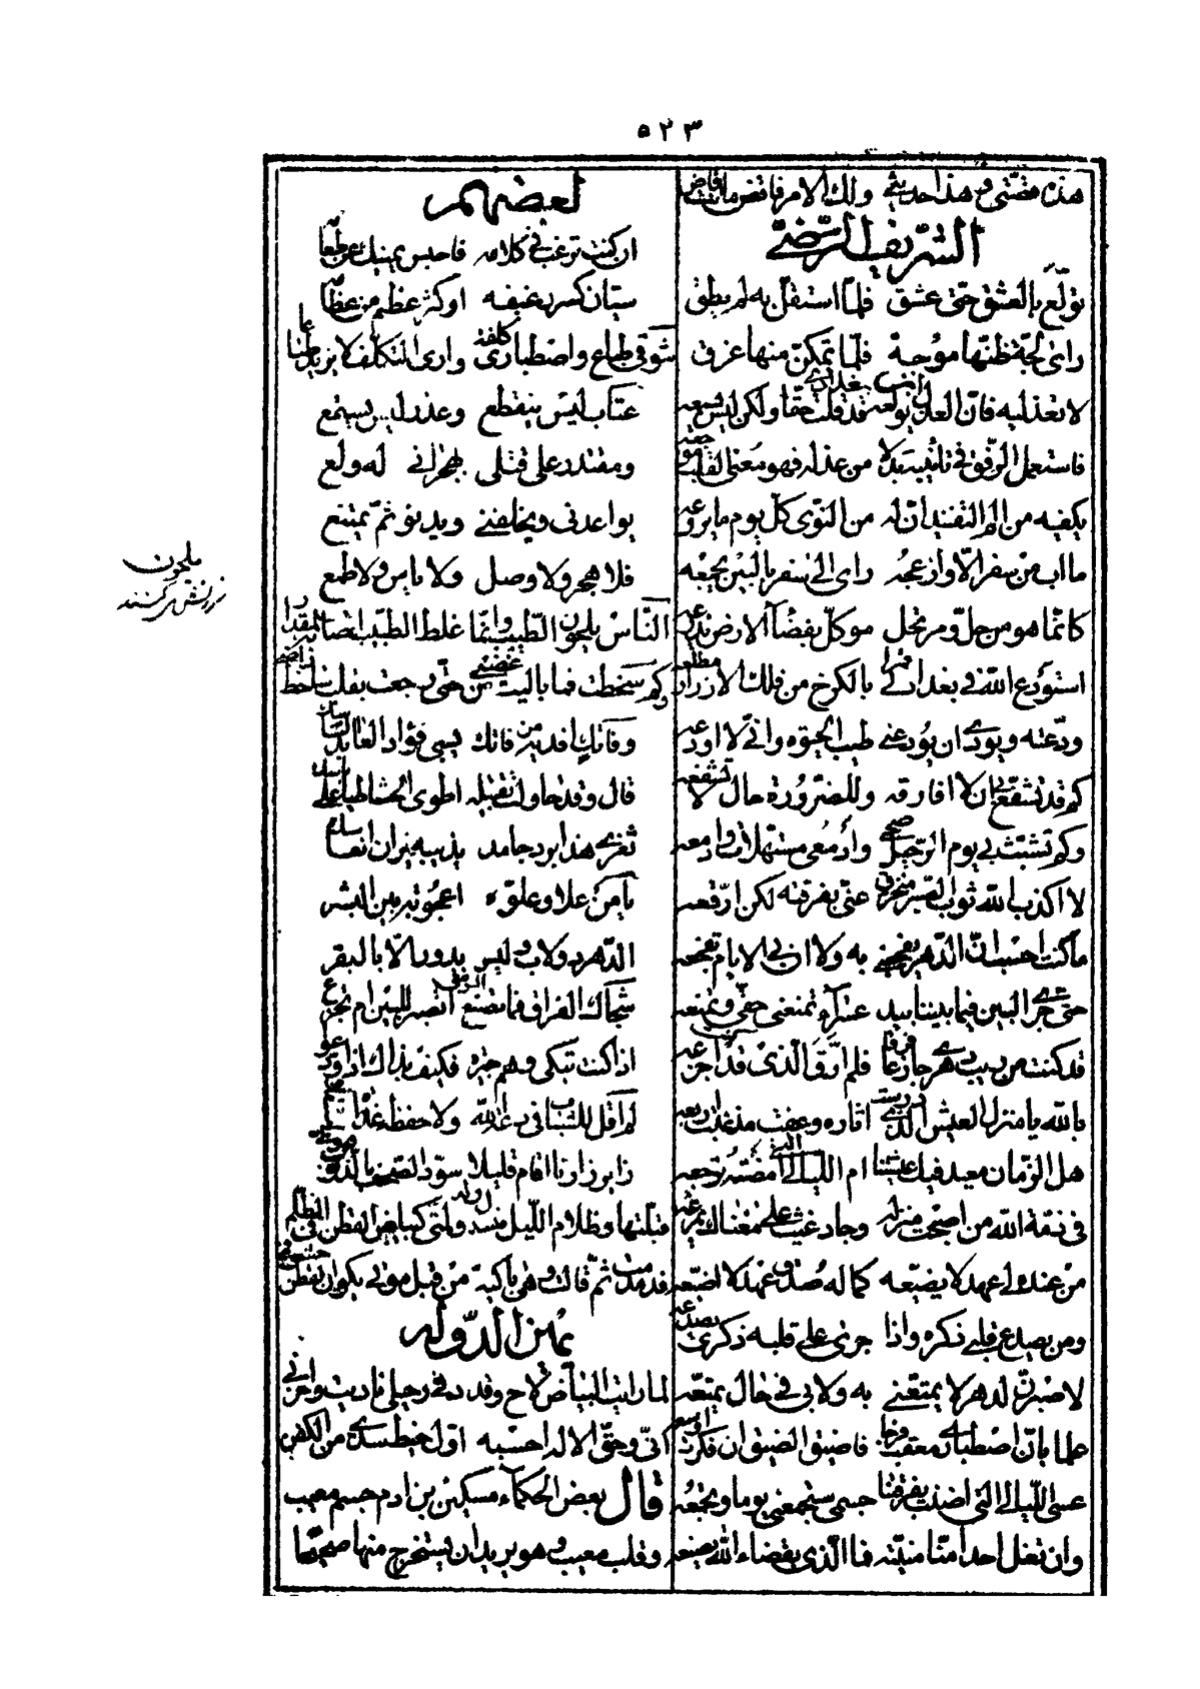 ٥٢٣
هذه قصتى و هذا حديثى ولك الامر فاقض ما انت قاض
الشريف الرضي
تولّع بالعشق حتى عشق فلمّا استقلّ به لم يطق
راى لجة ظنّها موجة فلمّا تمكّن منها غرق
لا تعذليه فانّ العذل يولعه قد قلت حقا ولكن ليس يسمعه
فاستعمل الرّفق فى تانيبه بدلا من عذله فهو مضنى القلب
يكفيه من الم التفنيد انّ له من النّوى كلّ يوم ما يروعه
ما اب من سفر الّا وازعجه راى الى سفر بالبين يجمعه
كانّما هو من حلّ و مرتحل موكل بفضآء الارض يذرعه
استودع اللّه فى بغداد لى قمرا بالكرخ من فلك الازرار مطلعه
ودّعته وبودّى ان يودّعنى طيب الحيوة وانّى لا اودّعه
كم قد تشفّع بى ان لا افارقه وللضّرورة حال لا تشفعه
وكم تشبّث بى يوم الرّحيل ضحى وادمعى مستهلّات وادمعه
لا اكذب اللّه ثوب الصبر منخرق عنّى بفرقته لكن ارقّعه
ما كنت احسب انّ الدّهر يفجعنى به ولا ان بى الايام تفجعه
حتى جرى البين فيما بيننا بيد عسرآء تمنعنى حقى وتمنعه
قد كنت من ريب دهرى جازعا فرقا فلم اوقّ الّذى قد كنت اجزعه
باللّه يا منزل العيش الّذى درست اثاره وعفت مذ غبت اربعه
هل الزّمان معيد فيك عيشتنا ام الليالى التى امضته ترجعه
فى ذمّة اللّه من اصبحت منزله وجاد غيث على مغناك يمرعه
من عنده لى عهد لا يضيّعه كما له صدق عهد لا اضيّعه
ومن يصدع قلبى ذكره واذا جرى على قلبه ذكرى يصدعه
لاصبرنّ لدهر لا يمتّعنى به ولا بى فى حال يمتعه
علما بانّ اصطبارى معقب فرجا فاضيق الضيق ان فكّرت اوسعه
عسى الليالى التى اضنت بفرقتنا جسمى ستجمعنى يوما وتجمعه
وان تغل احدا منّا منيّته فما الّذى بقضاء اللّه يصنعه
لبعضهم
ان كنت ترغب فى كلامه فاحبس يمينك عن طعامه
سيّان كسر رغيفه او كسر عظم من عظامه
شوقى طباع واصطبارى كلفة وارى التكلّف لا يزيل طباعا
عتاب ليس ينقطع وعذر ليس يستمع
ومقتدر على قتلى بهجرانى له ولع
يواعدنى ويخلفنى ويدنو ثمّ يمتنع
فلا هجر ولا وصل ولا ياس ولا طمع
النّاس يلحون الطّبيب وانّما غلط الطّبيب اصابة المقدار
ملحون
سرزنش مى‌كنند
وفاتك افديه من فاتك يسبى فؤاد العابد
قال وقد حاولت تقبيله اطوى الحشا
ثغرى هذا برد جامد يذيبه نيران انفاسك
يا من علا وعلوّه اعجوبة بين البشر
الدّهر دولاب وليس يدور الّا بالبقر
شجاك الفراق فما تصنع اتصبر للبين ام تجزع
اذا كنت تبكى وهم جيرة فكيف بذاك اذا ودّعوا
لم اقل للشّباب فى دعة اللّه ولا حفظه غداة
زاير زارنا اقام قليلا سوّد الصّحف بالذّنوب
قبّلتها وظلام اللّيل منسدل ولمّتى كبياض القطن فى الظّلم
فدمدمت ثمّ قالت وهى باكية من قبل موتى يكون القطن حشو فمى
يمين الدّوله
لمّا رايت البياض لاح وقد دنى رحيلى ناديت واحزانى
هذا وحقّ الاله احسبه اوّل خيط سدى من الكفن
قال بعض الحكمآء مسكين بن ادم جسم معيب
وقلب معيب وهو يريد ان يستخرج منها صحيحا